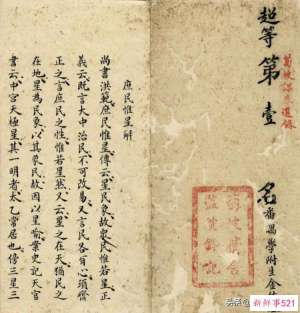 超等第壹名 番禺學附生金
庶民惟星解
尚書洪範庶民惟星傳云星民象故衆民惟若星正
義云既言大中治民不可改易又言民各有心須齊
正之言庶民之性惟若星然又云星之在天猶民之
在地星為民象以其象民故因以星喻案史記天官
書云中宮天極星其一明者太乙常居也傍三星三
新鮮事521